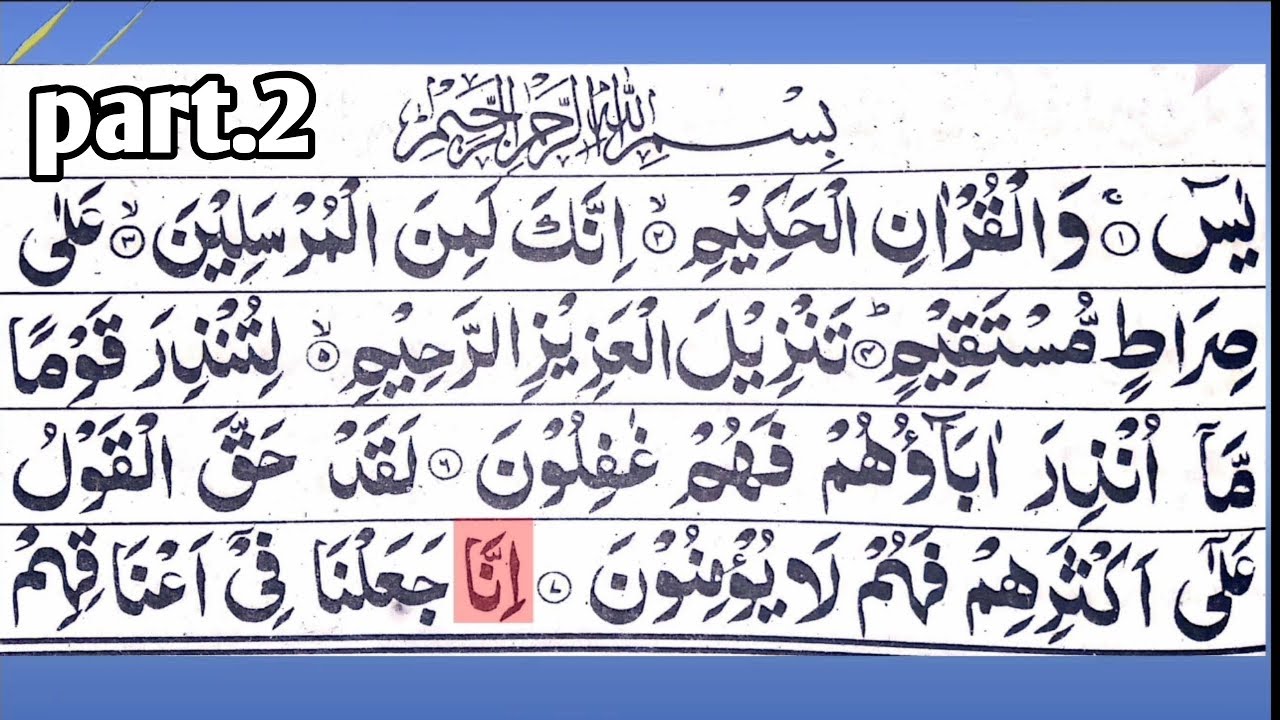 part.2
بِسْمِ اللهِ الرَّحْمٰنِ الرَّحِيْمِ
يٰسٓ ۚ ۝۱ وَالْقُرْاٰنِ الْحَكِيْمِ ۙ ۝۲ اِنَّكَ لَمِنَ الْمُرْسَلِيْنَ ۙ ۝۳ عَلٰى
صِرَاطٍ مُّسْتَقِيْمٍ ؕ ۝۴ تَنْزِيْلَ الْعَزِيْزِ الرَّحِيْمِ ۙ ۝۵ لِتُنْذِرَ قَوْمًا
مَّاۤ اُنْذِرَ اٰبَآؤُهُمْ فَهُمْ غٰفِلُوْنَ ۝۶ لَقَدْ حَقَّ الْقَوْلُ
عَلٰٓى اَكْثَرِهِمْ فَهُمْ لَا يُؤْمِنُوْنَ ۝۷ اِنَّا جَعَلْنَا فِيْۤ اَعْنَاقِهِمْ